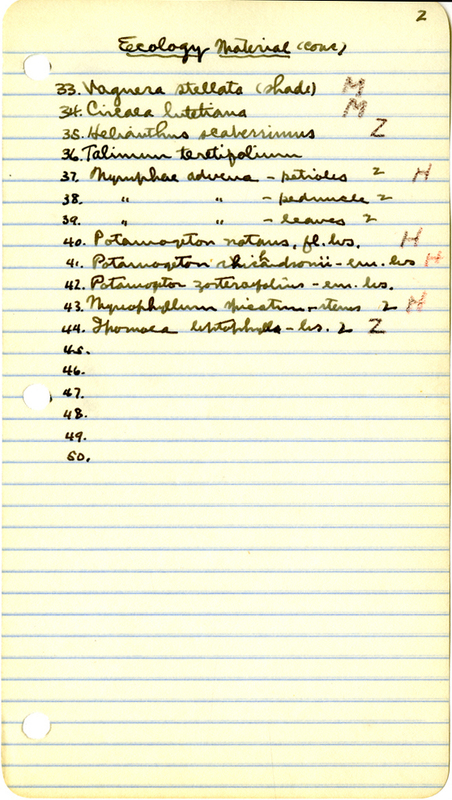 2
Ecology Material (Cont)
33. Vagnera stellata (shade) M
34. Circaea lutetiana M
35. Helianthus scaberrimus Z
36. Talinum teretifolium
37. Nymphae advena - petioles 2 H
38. " " - peduncle 2
39. " " - leaves 2
40. Potamogeton natans, fl. lvs. H
41. Potamogeton richardsonii - em. lvs H
42. Potamogeton - em. lvs.
43. Myriophyllum spicatum - stems 2 H
44. Ipomoea leptophylla - lvs. 2 Z
45.
46.
47.
48.
49.
50.